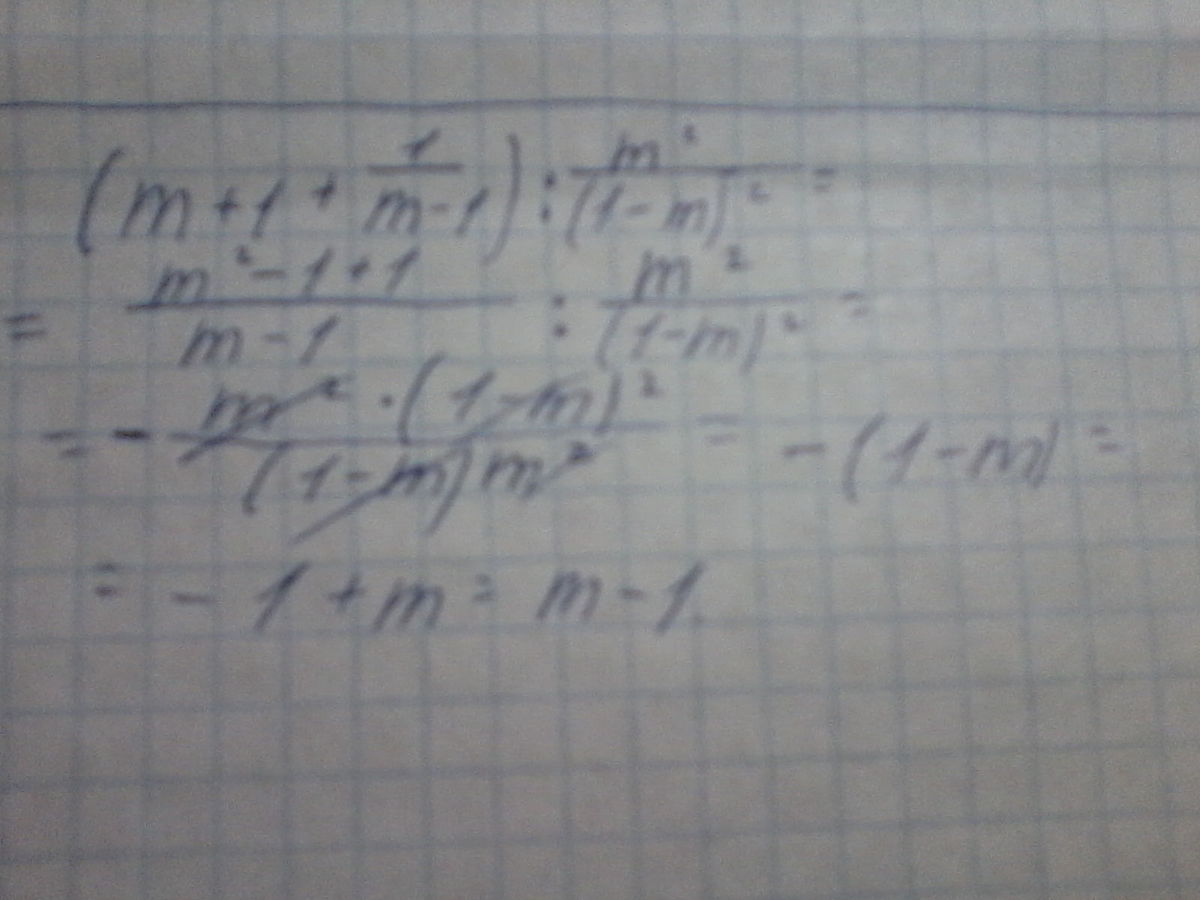 (m+1+1/(m-1)):m²/(1-m)²=
=(m²-1+1)/(m-1):m²/(1-m)²=
=-(m²·(1-m)²)/((1-m)m²)=-(1-m)=
=-1+m=m-1.